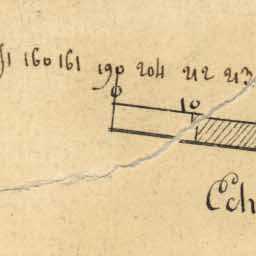 160 161 190 204 212 213
0 10
Ech